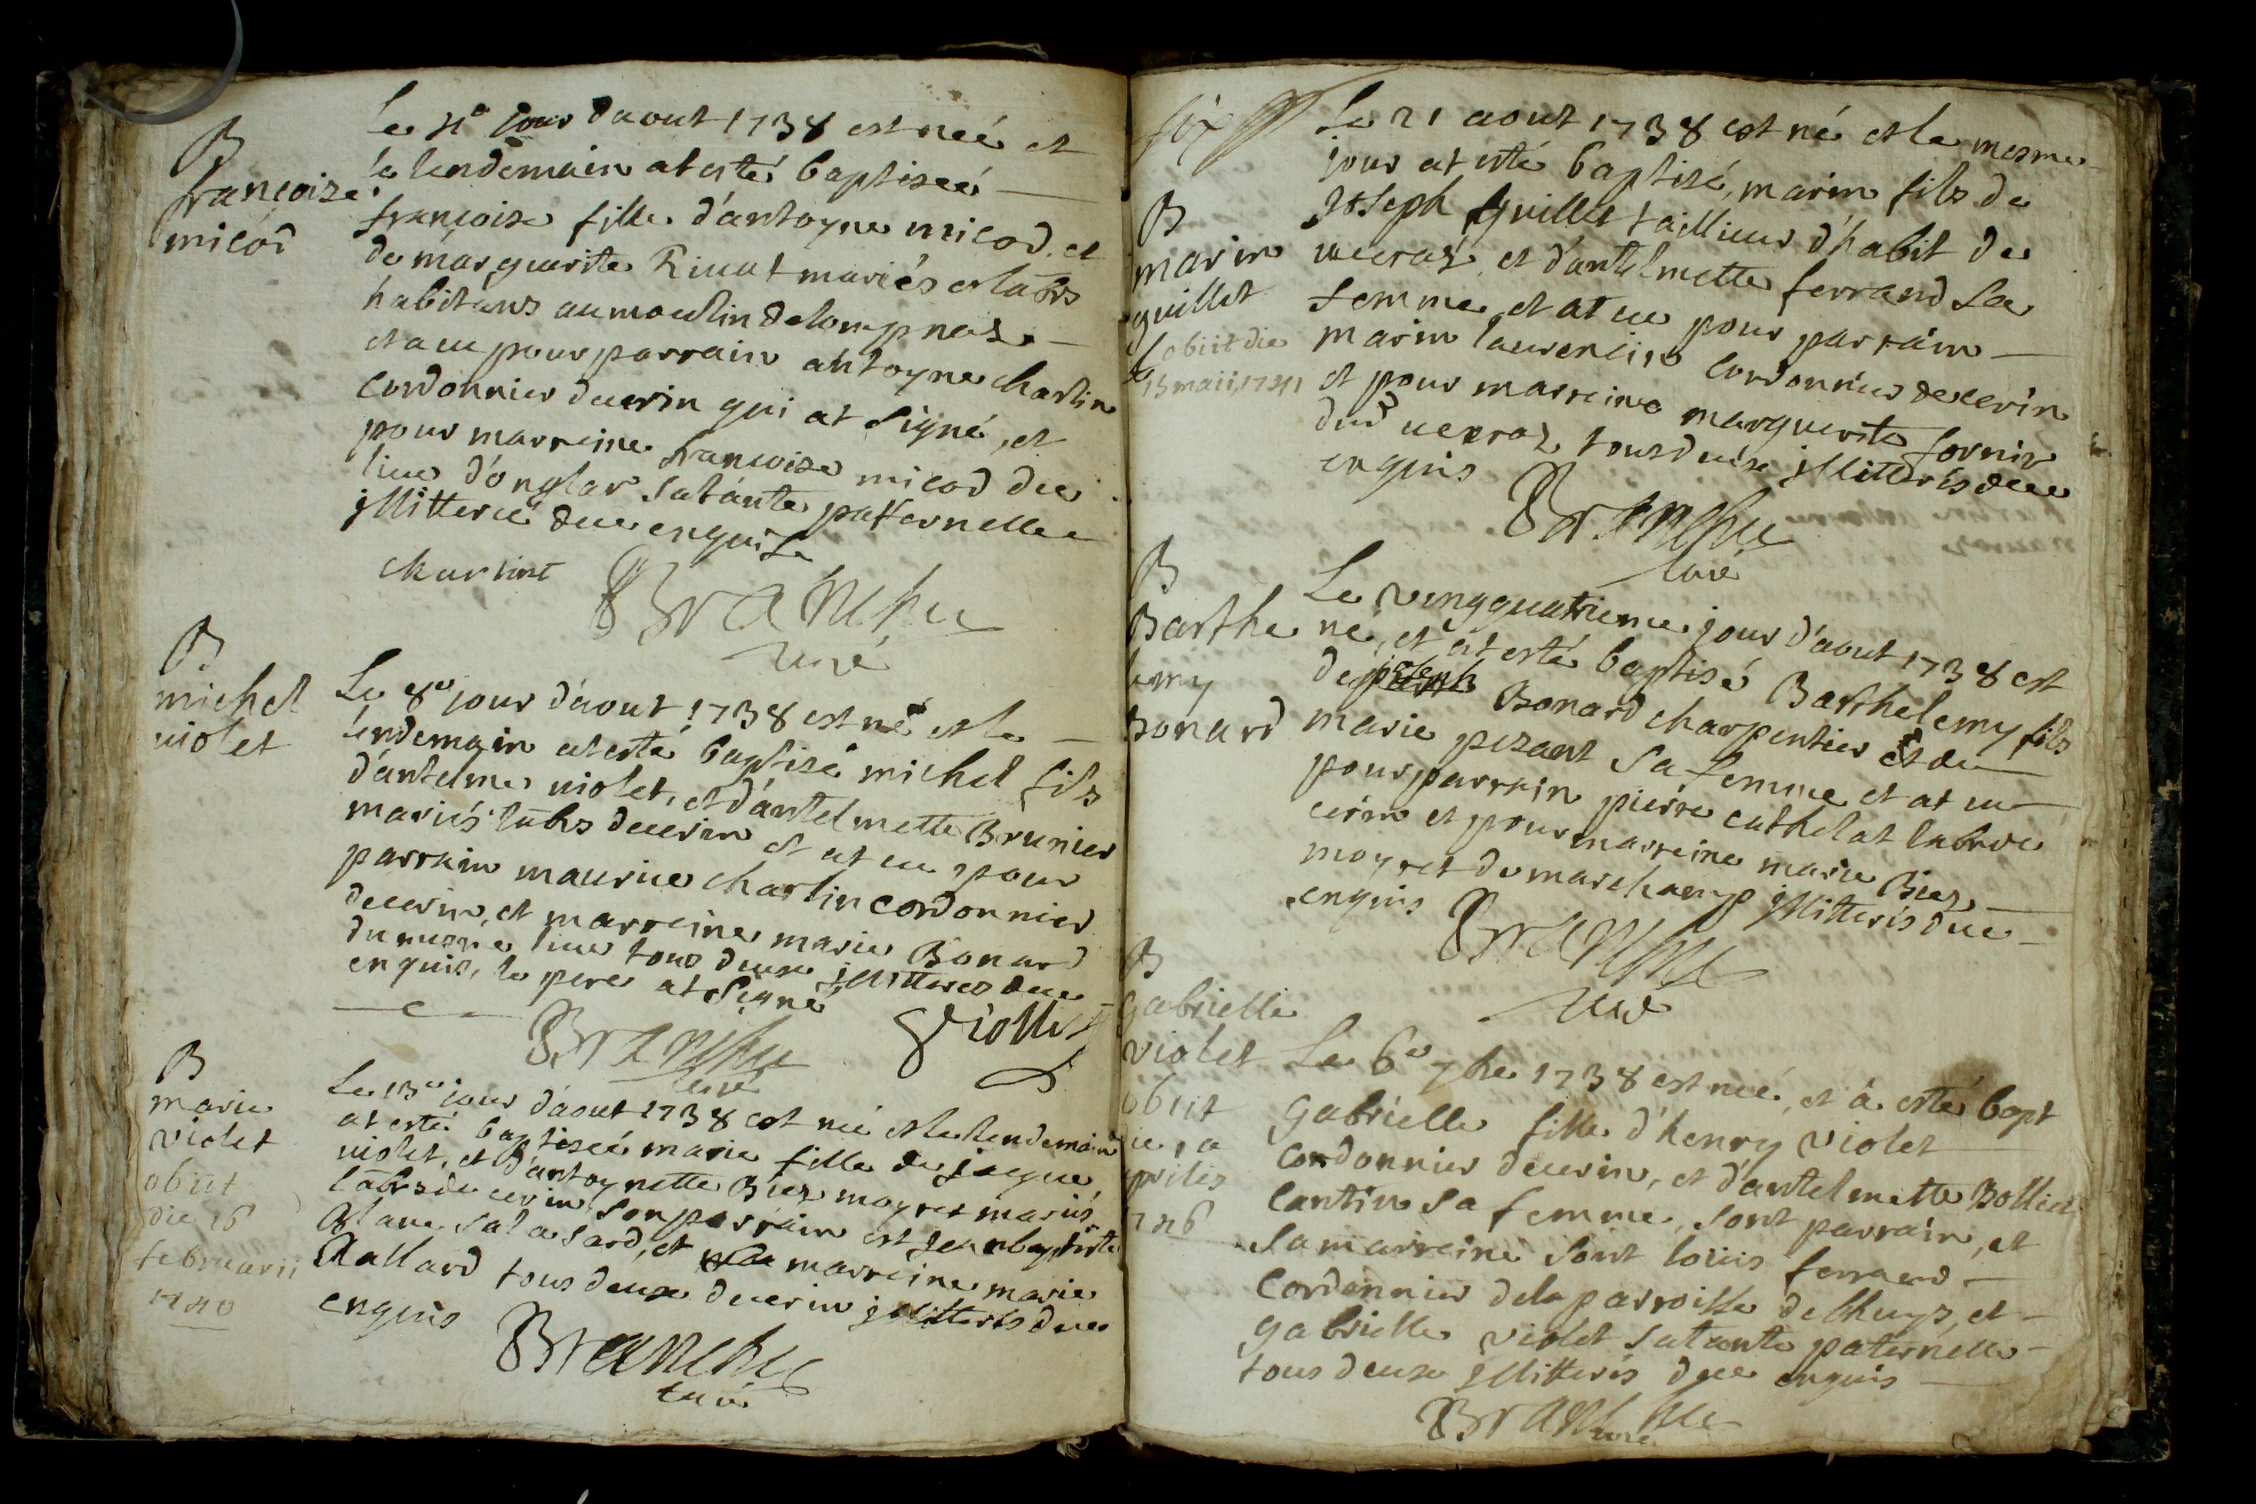 B
francoise
micod
Le 4e jour daout 1738 est neé et
le lendemain at esté baptiseé
francoise fille d'antoyne micod et
de marguerite Rivat mariés et labrs
habitans au moulin de lompnas
et a eu pour parrain antoyne charlin
cordonnier de cerin qui at signé, et
pour marreine francoise micod du
lieu d'onglas sa tante paternelle
illitereé deue enquise
charlint
Branche
curé
B
michel
violet
Le 8e jour d'aout 1738 est né et le
lendemain at esté baptisé michel fils
d'antelme violet, et d'antelmette Brunier
mariés labrs de cerin et at eu pour
parrain maurice charlin cordonnier
de cerin, et marreine marie Bonard
du mesme lieu tous deux illitteres deue
enquis, le pere at signé
Branche
curé
Violle
B
marie
violet
obiit
die 26
februarii
1740
Le 13e jour d'aout 1738 est neé et le lendemain
at esté baptiseé marie fille de jacque
violet, et d'antoynette Biez moyret mariés
labrs de cerin son parrain est jean baptiste
salasard, et marreine marie
Rallard tous deux de cerin illitterés deue
enquis
Branche
curé
B
marin
guillet
obiit die
13 maii 1741
Le 21 aout 1738 est né et le mesme
jour at esté baptisé, marin fils de
Joseph guillet taillieur d'habit de
uecraz et d'antelmette ferrand sa
femme, et at eu pour parrain
marin laurencin cordonnier de cerin
et pour marreine marguerite fornier
dud uecraz tous deux illitterés deue
enquis
Branche
curé
B
Barthe
lemy
Bonard
Le vingquatrieme jour d'aout 1738 est
né, et at esté baptisé Barthelemy fils
de joseph Bonard charpentier et de
marie pezant sa femme et at eu
pour parrain pierre cathelat labr de
cerin et pour marreine marie Biez
moyret de marchamp illitterés deue
enquis
Branche
curé
B
Gabrielle
violet
obiit
die 1 a
prilis
1746
Le 6e 7bre 1738 est neé, et a esté bapt
Gabrielle fille d'henry violet
cordonnier de cerin, et d'antelmette Bolliet
cantin sa femme, sont parrain, et
sa marreine sont louis ferrand
cordonnier de la parroisse de lhuys, et
gabrielle violet sa tante paternelle
tous deux illitterés deue enquis
Branche
curé